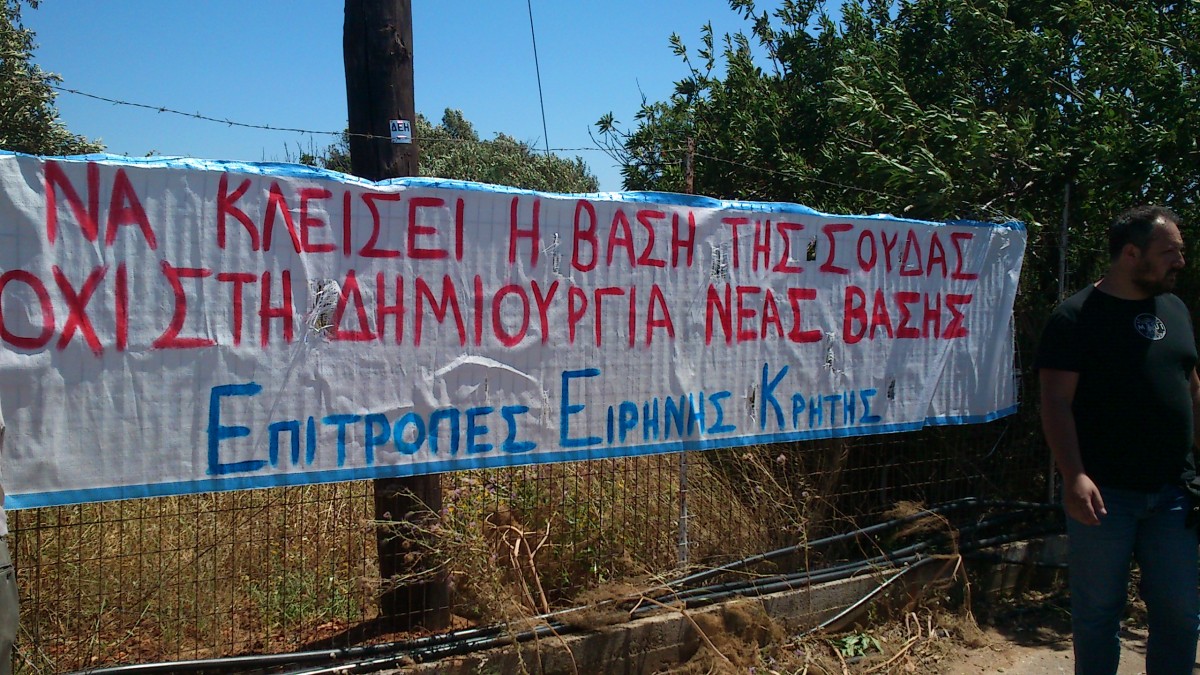 ΔΕΗ
ΝΑ ΚΛΕΙΣΕΙ Η ΒΑΣΗ ΤΗΣ ΣΟΥΔΑΣ
ΟΧΙ ΣΤΗ ΔΗΜΙΟΥΡΓΙΑ ΝΕΑΣ ΒΑΣΗΣ
ΕΠΙΤΡΟΠΕΣ ΕΙΡΗΝΗΣ ΚΡΗΤΗΣ